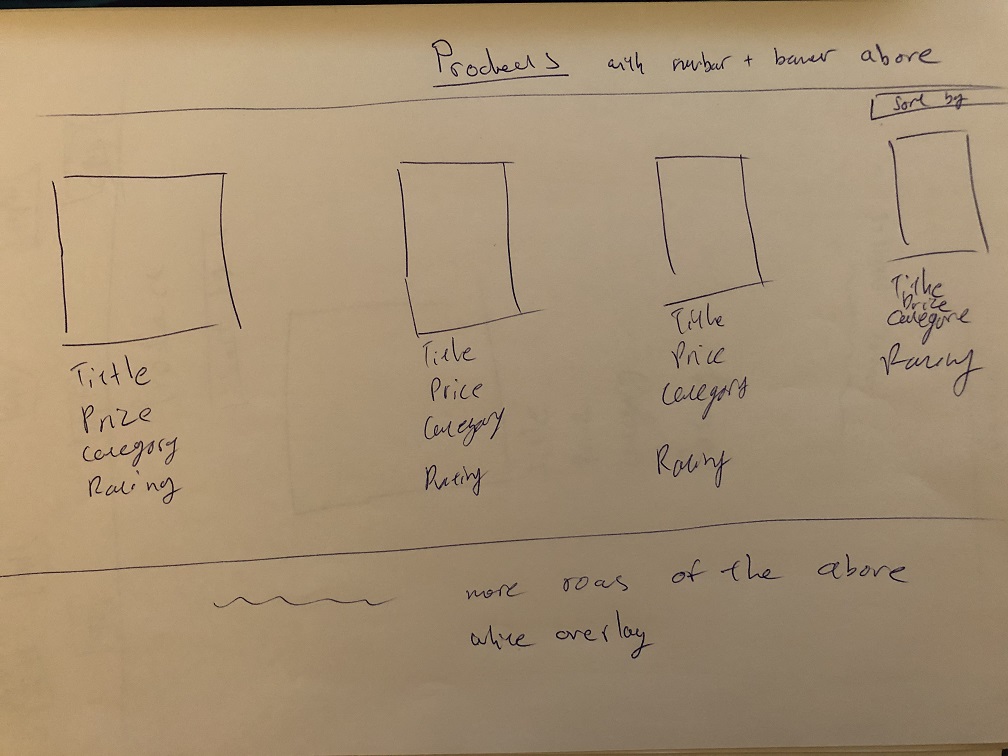 Products with navbar + banner above
Sort by
Tittle
Prize
Category
Rating
Title
Price
Category
Rating
Title
Price
Category
Rating
Title
Price
Categore
Rating
more roas of the above
alike overlay